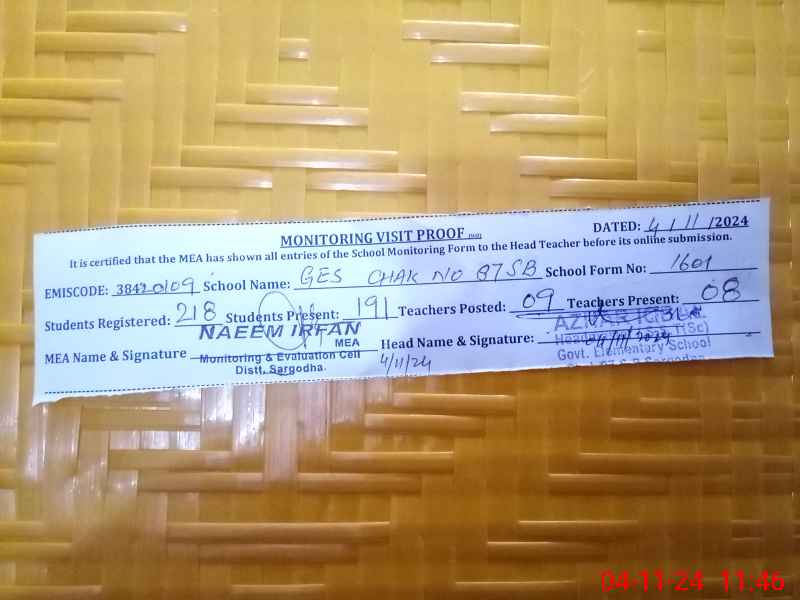 MONITORING VISIT PROOF DATED: 4/11/2024
It is certified that the MEA has shown all entries of the School Monitoring Form to the Head Teacher before its online submission.
EMISCODE: School Name: GES CHAK NO 87SB School Form No: 1601
Students Registered: 218 Students Present: 191 Teachers Posted: 09 Teachers Present: 08
NAEEM IRFAN
MEA
MEA Name & Signature Head Name & Signature:
Monitoring & Evaluation Cell
Distt, Sargodha.
4/11/24
Govt. Elementary School
04-11-24 11:46